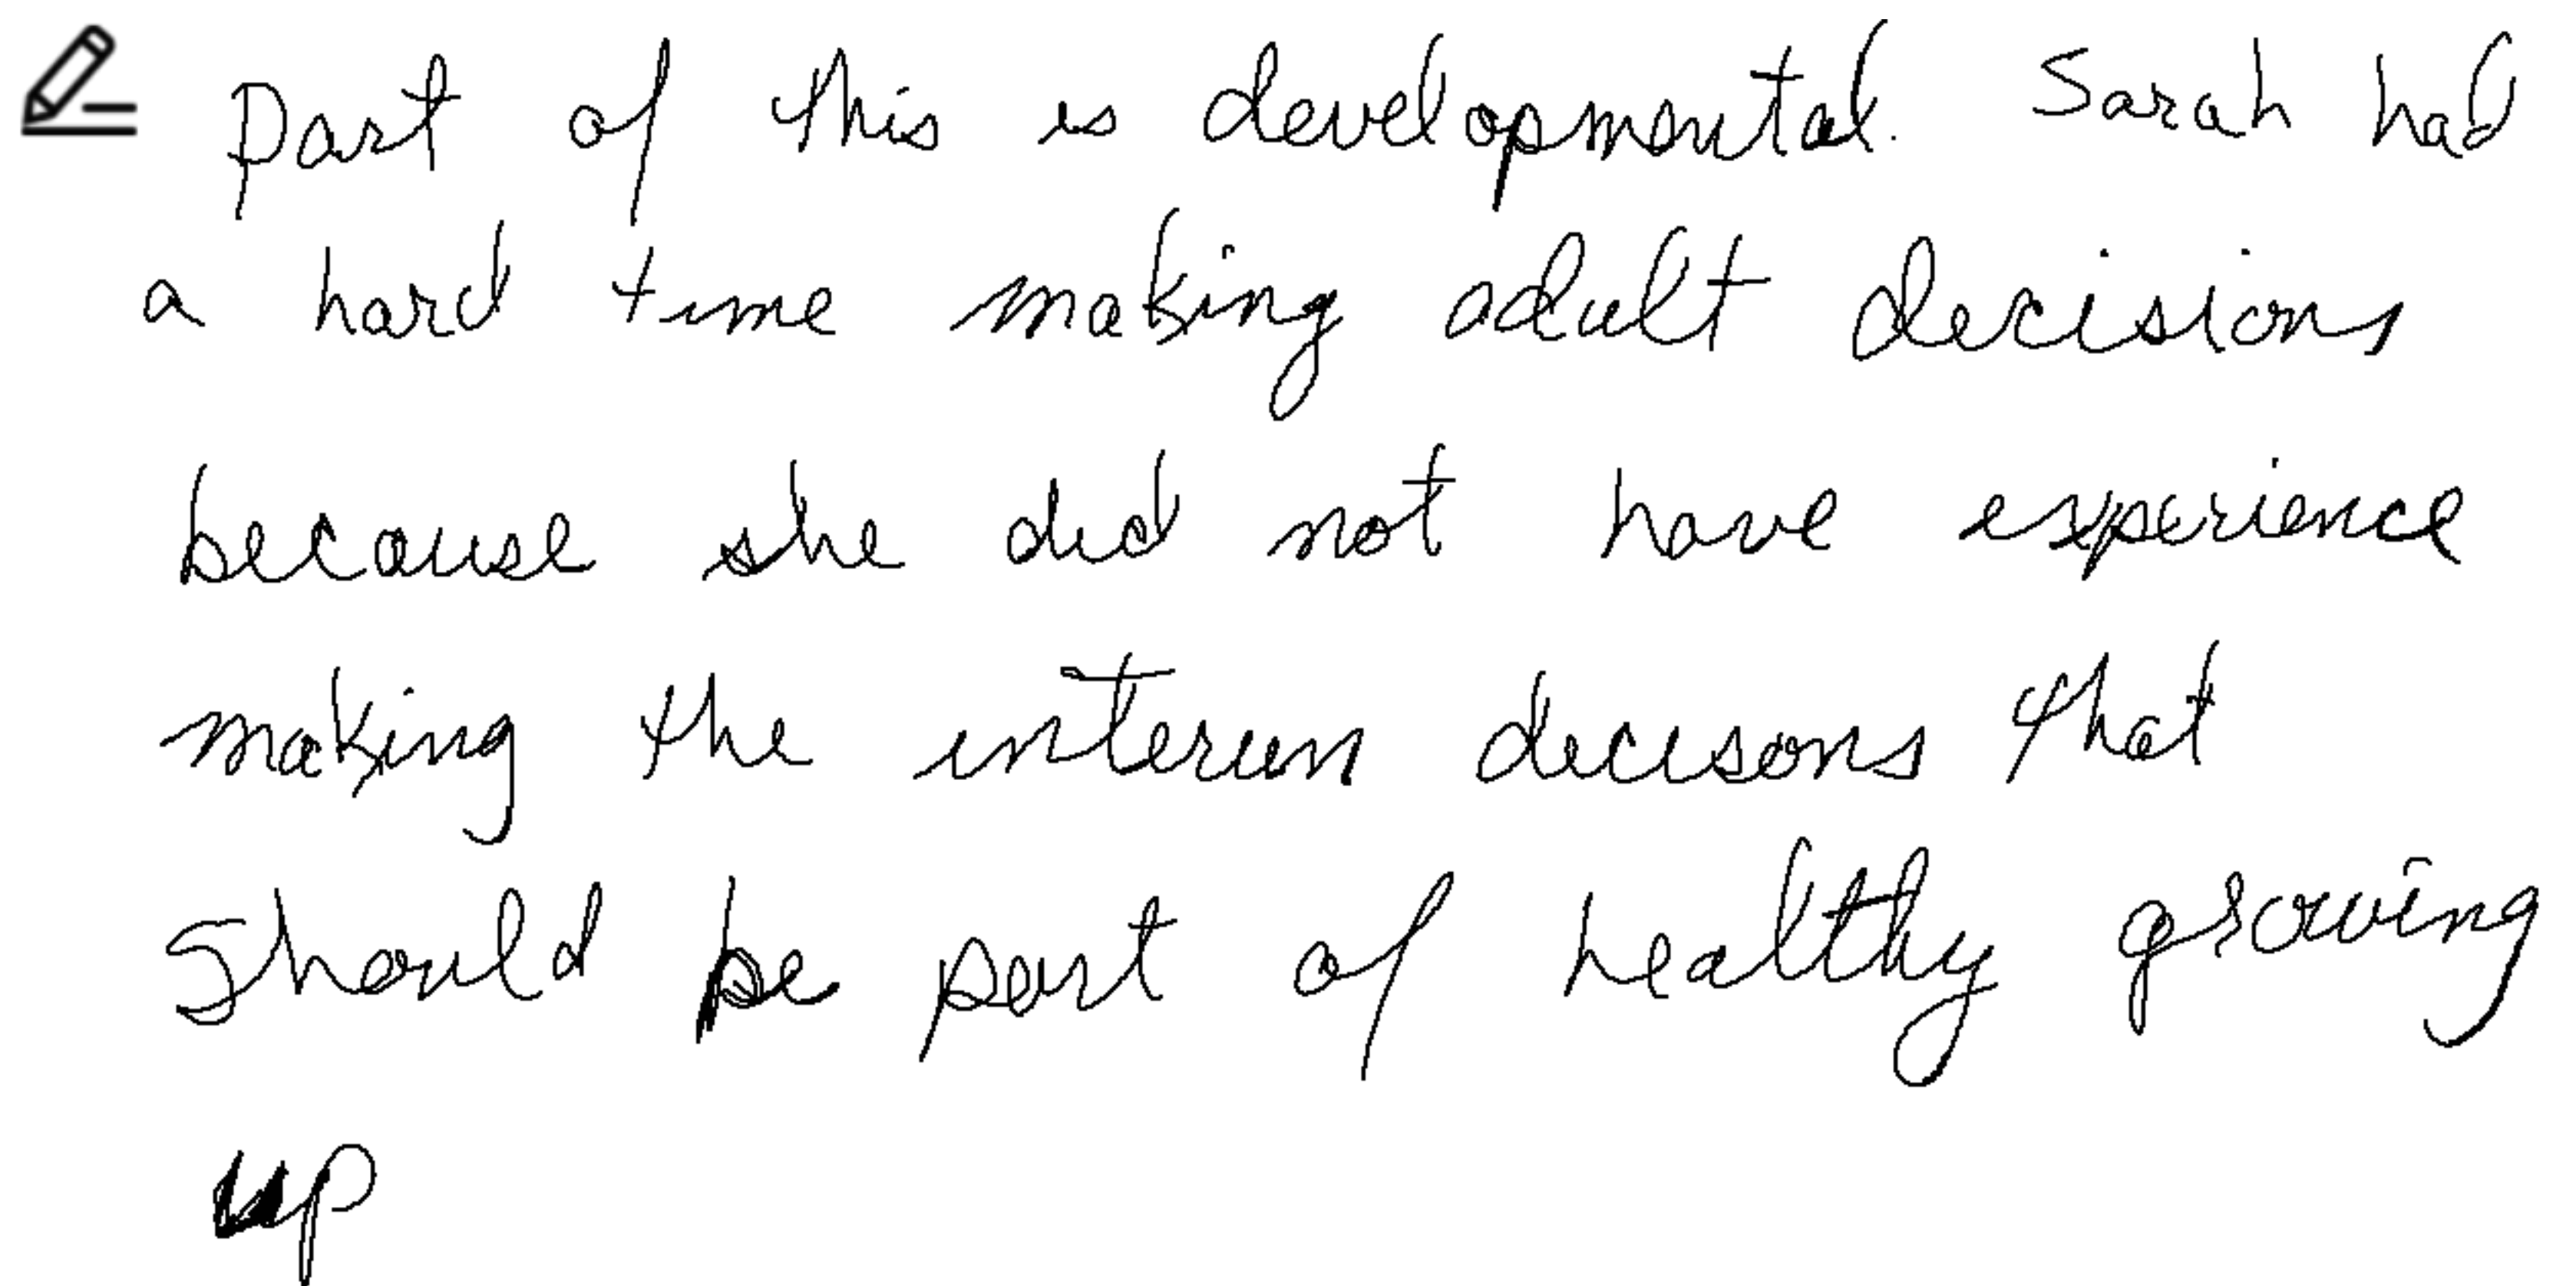 Part of this is developmental. Sarah had
a hard time making adult decisions
because she did not have experience
making the interim decisons that
should be part of healthy growing
up